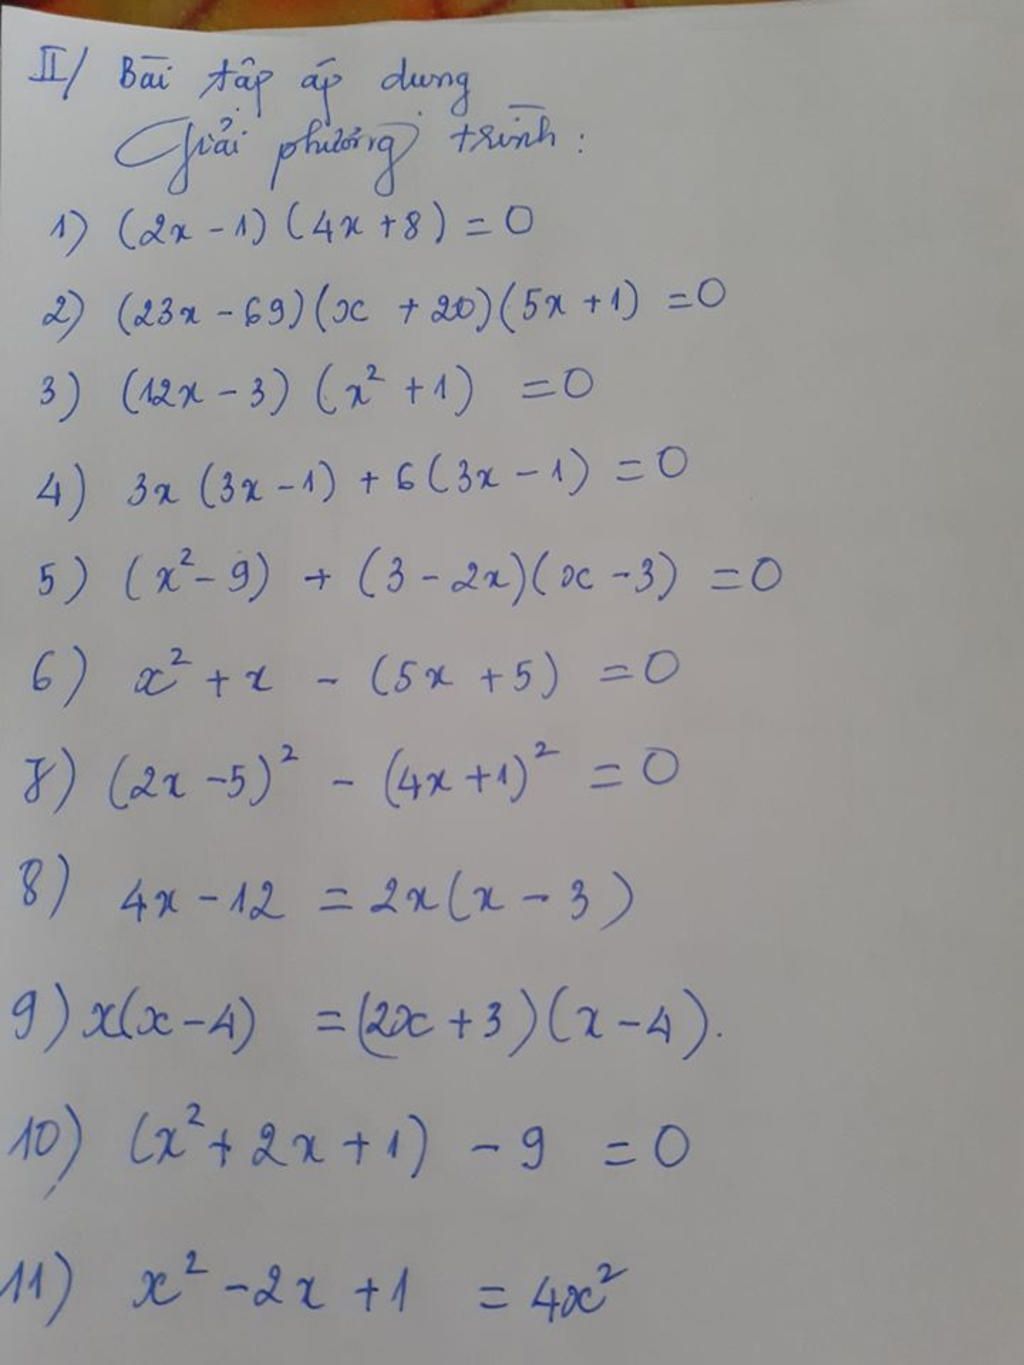 II/ Bài tập áp dụng
Giải phương trình:
1) (2x - 1) (4x + 8) = 0
2) (23x - 69) (x + 20) (5x + 1) = 0
3) (12x - 3) (x² + 1) = 0
4) 3x (3x - 1) + 6 (3x - 1) = 0
5) (x² - 9) + (3 - 2x)(x - 3) = 0
6) x² + x - (5x + 5) = 0
7) (2x - 5)² - (4x + 1)² = 0
8) 4x - 12 = 2x(x - 3)
9) x(x - 4) = (2x + 3)(x - 4).
10) (x² + 2x + 1) - 9 = 0
11) x² - 2x + 1 = 4x²